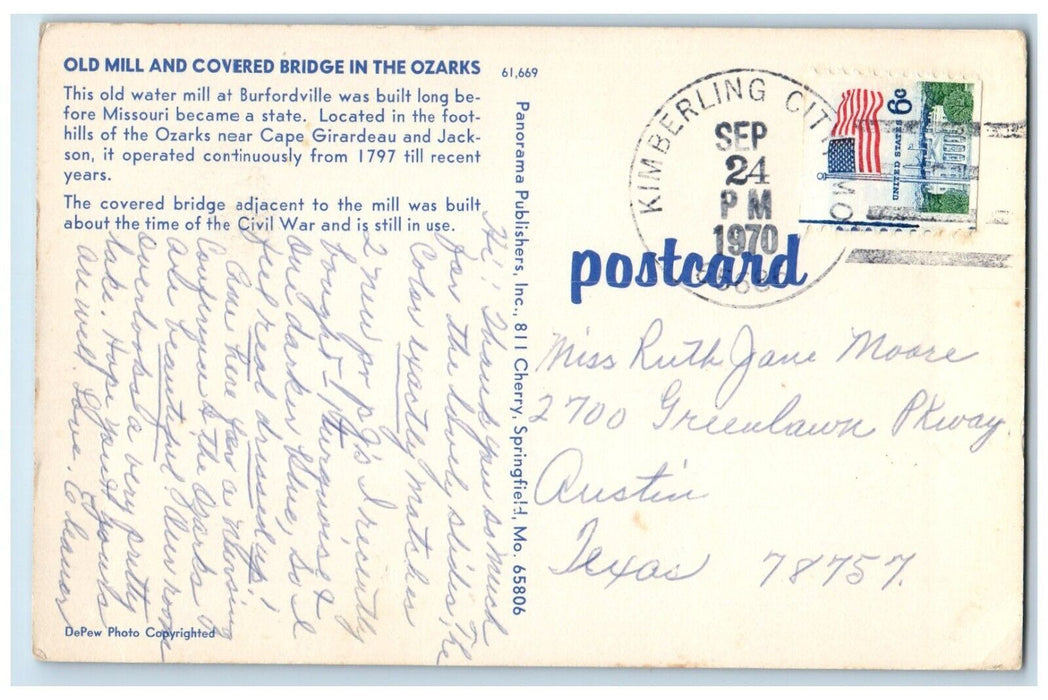 OLD MILL AND COVERED BRIDGE IN THE OZARKS
61,669
This old water mill at Burfordville was built long be-
fore Missouri became a state. Located in the foot-
hills of the Ozarks near Cape Girardeau and Jack-
son, it operated continuously from 1797 till recent
years.
The covered bridge adjacent to the mill was built
about the time of the Civil War and is still in use.
Hi! Thank you so much
for the lovely slides, The
Color exactly matches
2 new pr p.g.'s I recently
bought - 1 turquoise &
one darker blue, so I
feel real dressed up!
Came here for a nursing
Conference & the Ozarks
are beautiful. Our room
overlooks a very pretty
lake. Hope you & yours
are well. Love,
DePew Photo Copyrighted
Panorama Publishers, Inc., 811 Cherry, Springfield, Mo. 65806
KIMBERLING CITY, MO
SEP
24
PM
1970
UNITED STATES 6c
postcard
Miss Ruth Jane Moore
2700 Greenlawn Pkway.
Austin
Texas 78757.